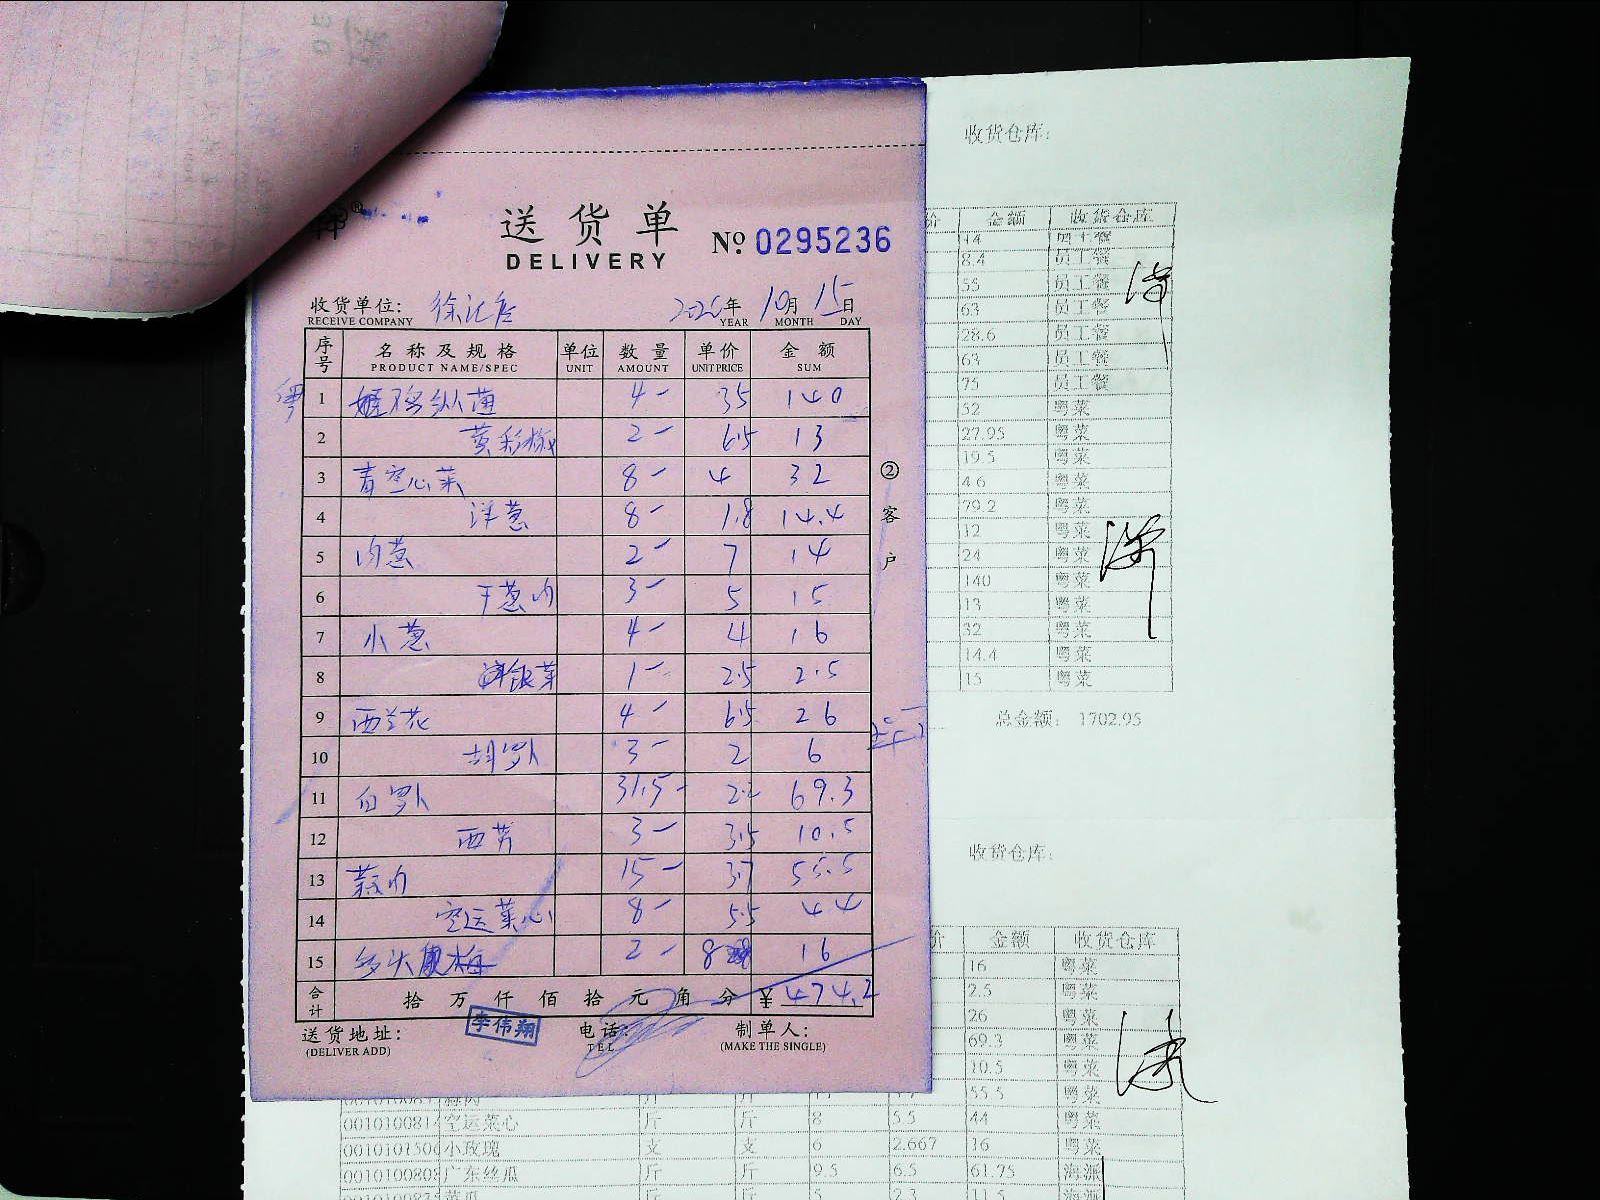 收货仓库:
送货单
DELIVERY
№ 0295236
收货单位: 徐汇店 年 10月 15日
RECEIVE COMPANY YEAR MONTH DAY
序号 名称及规格 单位 数量 单价 金额
PRODUCT NAME/SPEC UNIT AMOUNT UNIT PRICE SUM
1 4- 35 140
2 黄彩椒 2- 6.5 13
3 青空心菜 8- 4 32
4 洋葱 8- 1.8 14.4
5 肉葱 2- 7 14
6 干葱肉 3- 5 15
7 小葱 4- 4 16
8 银芽 1- 2.5 2.5
9 西兰花 4- 6.5 26
10 胡罗卜 3- 2 6
11 白罗卜 31.5- 2.2 69.3
12 西芹 3- 3.5 10.5
13 蒜肉 15- 3.7 55.5
14 空运菜心 8- 5.5 44
15 多头 2- 8 16
合计 拾万仟佰拾元角分 ¥ 474.2
送货地址: 电话: 制单人:
(DELIVER ADD) TEL (MAKE THE SINGLE)
李伟翔
②客户
价 金额 收货仓库
14 员工餐
8.4 员工餐
55 员工餐
63 员工餐
28.6 员工餐
63 员工餐
75 员工餐
52 粤菜
27.95 粤菜
19.5 粤菜
4.6 粤菜
79.2 粤菜
12 粤菜
24 粤菜
140 粤菜
13 粤菜
32 粤菜
14.4 粤菜
15 粤菜
总金额: 1702.95
收货仓库:
价 金额 收货仓库
16 粤菜
2.5 粤菜
26 粤菜
69.3 粤菜
10.5 粤菜
蒜肉 斤 斤 55.5 粤菜
空运菜心 斤 斤 8 5.5 44 粤菜
小玫瑰 支 支 6 2.667 16 粤菜
广东丝瓜 斤 斤 9.5 6.5 61.75 海派
黄瓜 斤 斤 5 2.3 11.5 海派